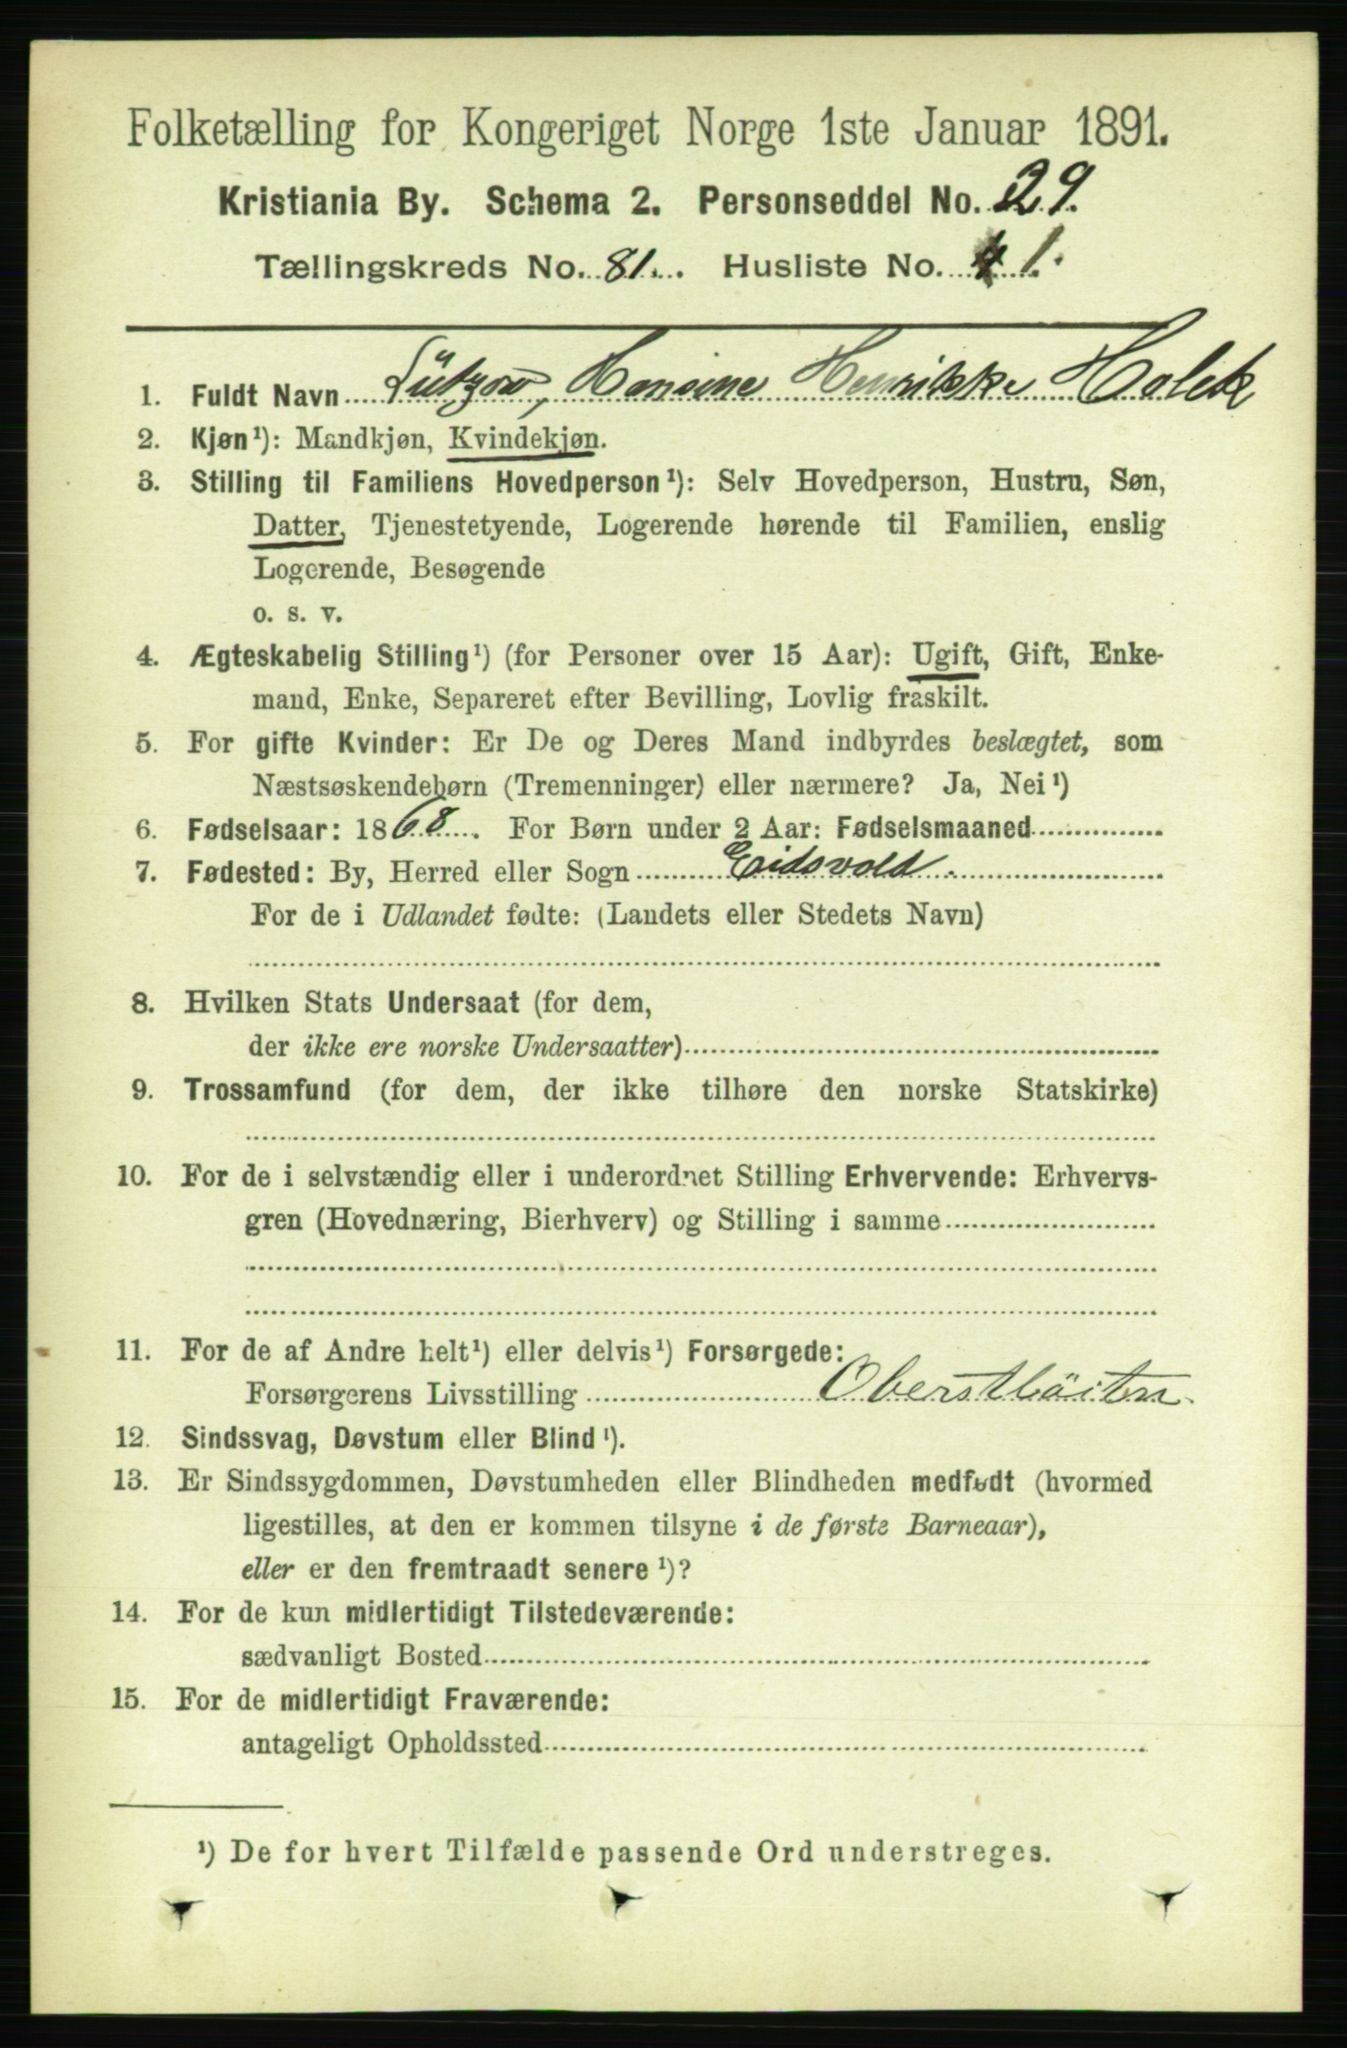 Folketælling for Kongeriget Norge 1ste Januar 1891.
Kristiania By. Schema 2. Personseddel No. 29.
Tællingskreds No. 81. Husliste No. 1.
1. Fuldt Navn Lützow, Hansine Henrikke Holck
2. Kjøn¹): Mandkjøn, Kvindekjøn.
3. Stilling til Familiens Hovedperson¹): Selv Hovedperson, Hustru, Søn,
Datter, Tjenestetyende, Logerende hørende til Familien, enslig
Logerende, Besøgende
o. s. v.
4. Ægteskabelig Stilling¹) (for Personer over 15 Aar): Ugift, Gift, Enke-
mand, Enke, Separeret efter Bevilling, Lovlig fraskilt.
5. For gifte Kvinder: Er De og Deres Mand indbyrdes beslægtet, som
Næstsøskendebørn (Tremenninger) eller nærmere? Ja, Nei¹)
6. Fødselsaar: 1868. For Børn under 2 Aar: Fødselsmaaned
7. Fødested: By, Herred eller Sogn Eidsvold.
For de i Udlandet fødte: (Landets eller Stedets Navn)
8. Hvilken Stats Undersaat (for dem,
der ikke ere norske Undersaatter)
9. Trossamfund (for dem, der ikke tilhøre den norske Statskirke)
10. For de i selvstændig eller i underordnet Stilling Erhvervende: Erhvervs-
gren (Hovednæring, Bierhverv) og Stilling i samme
11. For de af Andre helt¹) eller delvis¹) Forsørgede:
Forsørgerens Livsstilling
12. Sindssvag, Døvstum eller Blind¹).
13. Er Sindssygdommen, Døvstumheden eller Blindheden medfødt (hvormed
ligestilles, at den er kommen tilsyne i de første Barneaar),
eller er den fremtraadt senere¹)?
14. For de kun midlertidigt Tilstedeværende:
sædvanligt Bosted
15. For de midlertidigt Fraværende:
antageligt Opholdssted
¹) De for hvert Tilfælde passende Ord understreges.